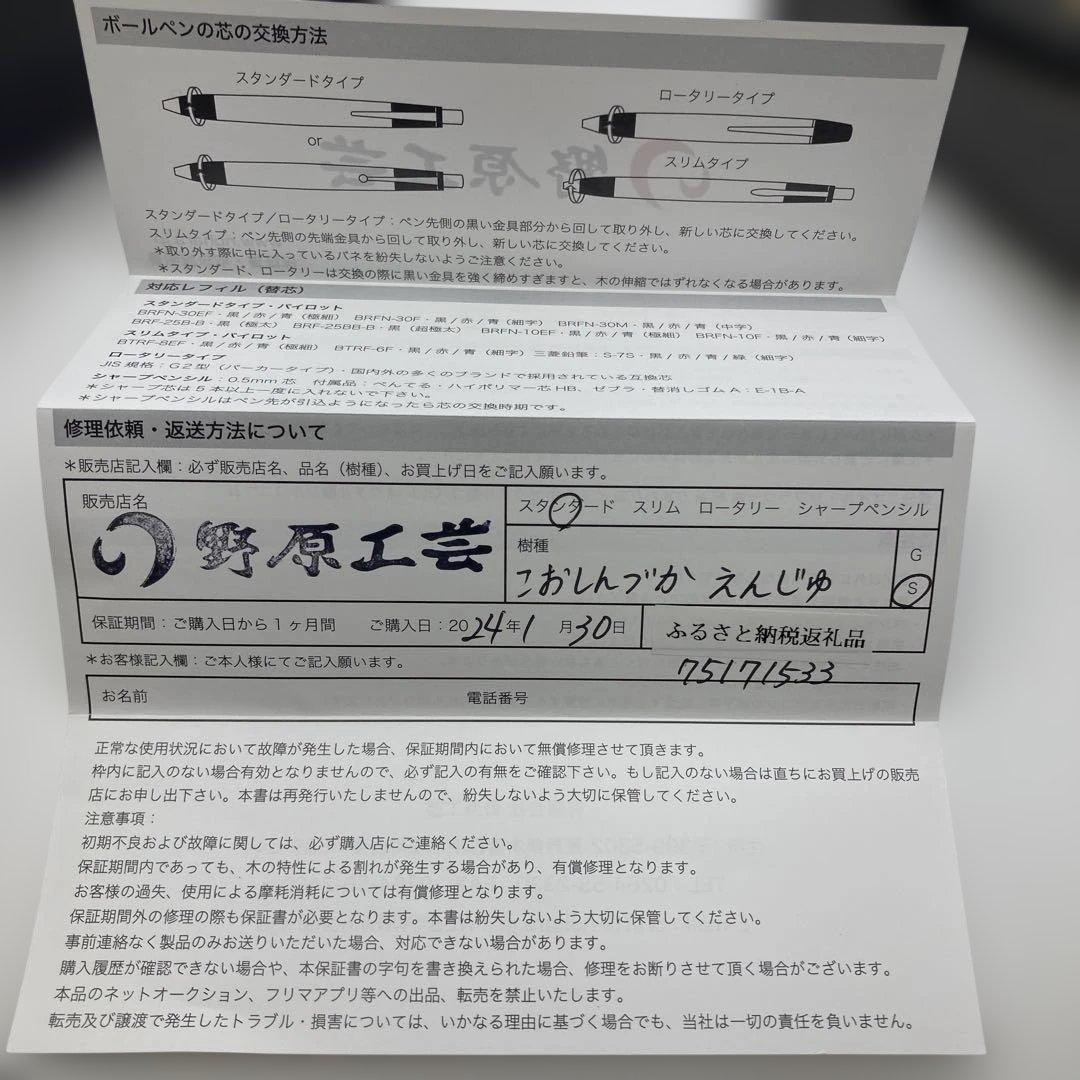 ボールペンの芯の交換方法
スタンダードタイプ
ロータリータイプ
or
スリムタイプ
スタンダードタイプ/ロータリータイプ:ペン先側の黒い金具部分から回して取り外し、新しい芯に交換してください。
スリムタイプ:ペン先側の先端金具から回して取り外し、新しい芯に交換してください。
*取り外す際に中に入っているバネを紛失しないようご注意ください。
*スタンダード、ロータリーは交換の際に黒い金具を強く締めすぎますと、木の伸縮ではずれなくなる場合があります。
対応レフィル(替芯)
スタンダードタイプ・パイロット
BRFN-30EF・黒/赤/青(極細) BRFN-30F・黒/赤/青(細字) BRFN-30M・黒/赤/青(中字)
BRF-25B-B・黒(極太) BRF-25BB-B・黒(超極太) BRFN-10EF・黒/赤/青(極細) BRFN-10F・黒/赤/青(細字)
スリムタイプ・パイロット
BTRF-8EF・黒/赤/青(極細) BTRF-6F・黒/赤/青(細字)三菱鉛筆:S-7S・黒/赤/青/緑(細字)
ロータリータイプ
JIS規格:G2型(パーカータイプ)・国内外の多くのブランドで採用されている互換芯
シャープペンシル:0.5mm芯 付属品:ぺんてる・ハイポリマー芯HB、ゼブラ・替消しゴムA:E-1B-A
*シャープ芯は5本以上一度に入れないで下さい。
*シャープペンシルはペン先が引込ようになったら芯の交換時期です。
修理依頼・返送方法について
*販売店記入欄:必ず販売店名、品名(樹種)、お買上げ日をご記入願います。
販売店名
野原工芸
スタンダード スリム ロータリー シャープペンシル
樹種
こおしんづか えんじゅ
G
S
保証期間:ご購入日から1ヶ月間 ご購入日:2024年1月30日
ふるさと納税返礼品
75171533
*お客様記入欄:ご本人様にてご記入願います。
お名前 電話番号
正常な使用状況において故障が発生した場合、保証期間内において無償修理させて頂きます。
枠内に記入のない場合有効となりませんので、必ず記入の有無をご確認下さい。もし記入のない場合は直ちにお買上げの販売
店にお申し出下さい。本書は再発行いたしませんので、紛失しないよう大切に保管してください。
注意事項:
初期不良および故障に関しては、必ず購入店にご連絡ください。
保証期間内であっても、木の特性による割れが発生する場合があり、有償修理となります。
お客様の過失、使用による摩耗消耗については有償修理となります。
保証期間外の修理の際も保証書が必要となります。本書は紛失しないよう大切に保管してください。
事前連絡なく製品のみお送りいただいた場合、対応できない場合があります。
購入履歴が確認できない場合や、本保証書の字句を書き換えられた場合、修理をお断りさせて頂く場合がございます。
本品のネットオークション、フリマアプリ等への出品、転売を禁止いたします。
転売及び譲渡で発生したトラブル・損害については、いかなる理由に基づく場合でも、当社は一切の責任を負いません。